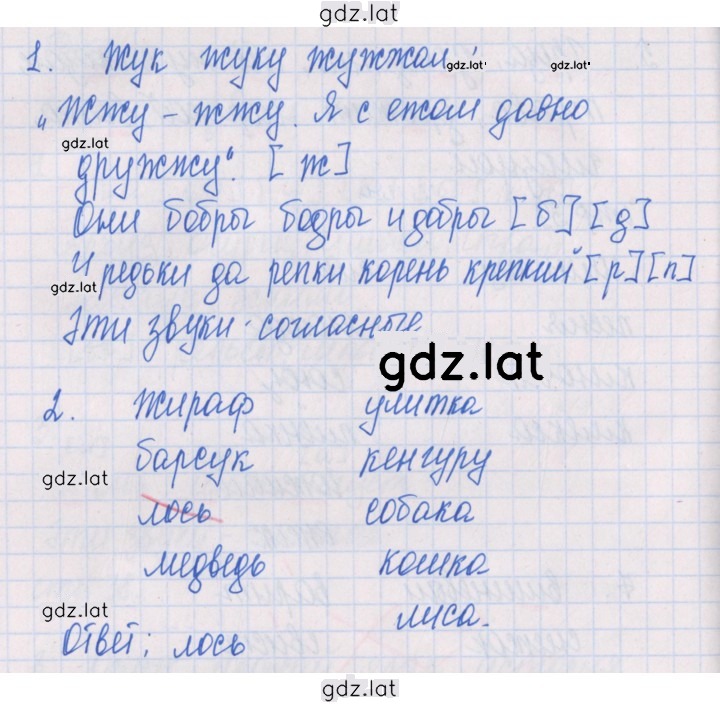 gdz.lat
1. Жук жуку жужжал:
gdz.lat gdz.lat
„Жжу – жжу. Я с ежом давно
gdz.lat
дружжу“. [ж]
Они бобры бодры и добры [б] [д]
И редьки да репки корень крепкий [р] [п]
gdz.lat
Эти звуки - согласные
gdz.lat
2. Жираф улитка
барсук кенгуру
gdz.lat
лось собака
медведь кошка
gdz.lat
лиса.
Ответ: лось
gdz.lat